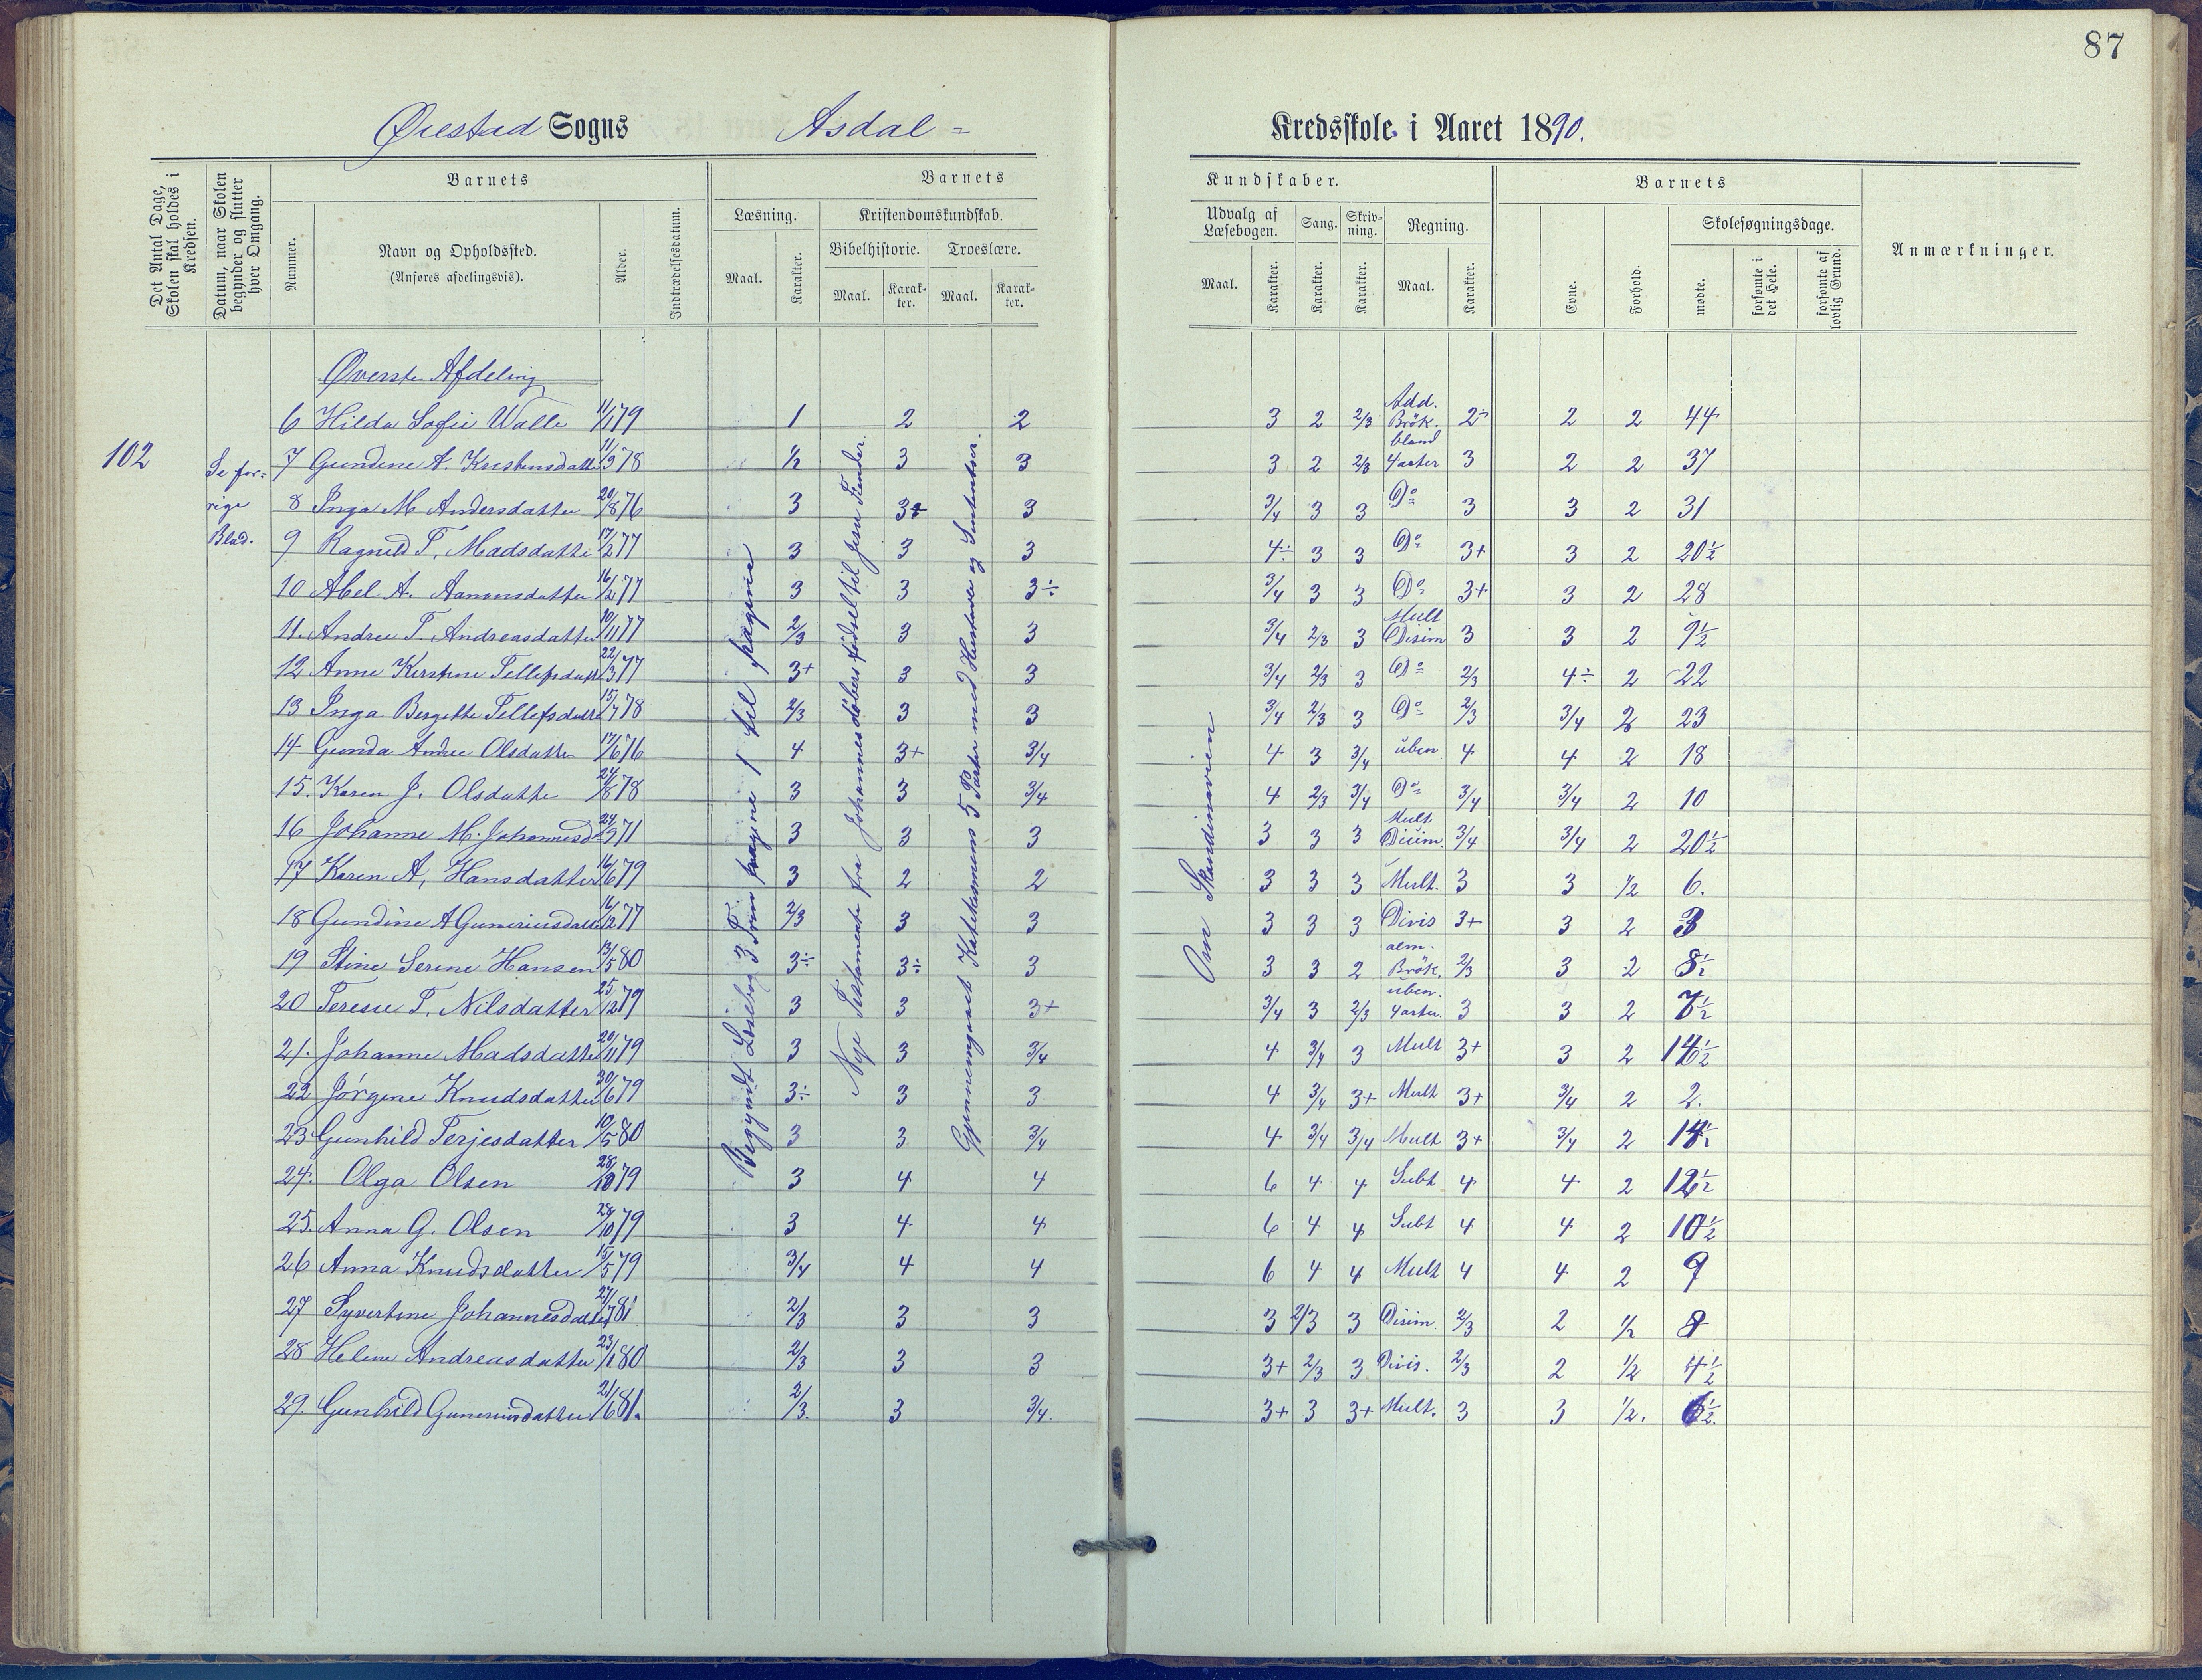 87
Øiestad Sogns Asdal =
Kredsskole i Aaret 1890.
Det Antal Dage, Skolen skal holdes i Kredsen.
Datum, naar Skolen begynder og slutter hver Omgang.
Barnets
Nummer.
Navn og Opholdssted.
(Anføres afdelingsvis).
Alder.
Indtrædelsesdatum.
Barnets
Læsning.
Kristendomskundskab.
Bibelhistorie.
Troeslære.
Maal.
Karakter.
Maal.
Karak-
ter.
Maal.
Karak-
ter.
Kundskaber.
Udvalg af
Læsebogen.
Sang.
Skriv-
ning.
Regning.
Maal.
Karakter.
Karakter.
Karakter.
Maal.
Karakter.
Barnets
Evne.
Forhold.
Skolesøgningsdage.
mødte.
forsømte i det Hele.
forsømte af lovlig Grund.
Anmærkninger.
102
Se for-
rige
Blad.
Begyndt Læsebog 3 Trin pagina 1 til pagina
Nye Testamente fra Johannes døbers fødsel til Jesu Fiender.
Gjennemgaaet Katekismens 5 Parter med Hustavle og Sententser.
Om Skandinavien
Øverste Afdeling
6 Hilda Sofie Walle 11/1 79 1 2 2 3 2 2/3 Add. Brök. 2÷ 2 2 44
7 Gundine A. Kristensdatt 11/9 78 1/2 3 3 3 2 2/3 bland 4 arter 3 2 2 37
8 Inga M Andersdatter 20/8 76 3 3+ 3 3/4 3 3 Do 3 3 2 31
9 Ragnild T. Madsdatte 17/2 77 3 3 3 4÷ 3 3 Do 3+ 3 2 20½
10 Abel A. Aanonsdatter 16/2 77 3 3 3÷ 3/4 3 3 Do 3+ 3 2 28
11. Andrea T. Andreasdatte 10/11 77 2/3 3 3 3/4 2/3 3 Mult Disim 3 3 2 9½
12 Anne Kirstine Tellefsdatt 22/3 77 3+ 3 3 3/4 2/3 3 Do 2/3 4÷ 2 22
13 Inga Bergitte Tellefsdatt 15/7 78 2/3 3 3 3/4 2/3 3 Do 2/3 3/4 2 23
14 Gunda Andrea Olsdatte 17/6 76 4 3+ 3/4 4 3 3/4 uben 4 4 2 18
15. Karen J. Olsdatte 24/8 78 3 3 3/4 4 2/3 3/4 Do 3/4 3/4 2 10
16 Johanne M. Johannesd 24/9 71 3 3 3 3 3 3 Mult Disim. 3/4 3/4 2 20½
17 Karen A, Hansdatter 16/6 79 3 2 2 3 3 3 Mult. 3 3 1/2 6.
18 Gundine A Gumeriusdatte 16/12 77 2/3 3 3 3 3 3 Divis 3+ 3 2 3
19 Stine Serine Hansen 13/5 80 3÷ 3÷ 3 3 3 2 alm. Brök. 2/3 3 2 8½
20 Terese T. Nilsdatter 25/12 79 3 3 3+ 3/4 3 2/3 uben. 4 arter. 3 3 2 7½
21. Johanne Madsdatte 20/11 79 3 3 3/4 4 3/4 3 Mult 3+ 3 2
22 Jörgine Knudsdatter 30/6 79 3÷ 3 3 4 3/4 3+ Mult 3+ 3/4 2 2.
23 Gunhild Terjesdatter 10/5 80 3 3 3/4 4 3/4 3/4 Mult 3+ 3/4 2
24. Olga Olsen 28/10 79 3 4 4 6 4 4 Subt 4 4 2 12½
25. Anna G. Olsen 28/10 79 3 4 4 6 4 4 Subt 4 4 2 10½
26 Anna Knudsdatter 15/5 79 3/4 4 4 6 4 4 Mult 4 4 2 9
27 Syvertine Johannesdatte 27/7 81 2/3 3 3 3 2/3 3 Disim. 2/3 2 1/2 8
28 Heline Andreasdatter 23/1 80 2/3 3 3 3+ 2/3 3 Divis. 2/3 2 1/2 4½
29. Gunhild Gumeriusdatter 21/6 81. 2/3. 3 3/4. 3+ 3 3+ Mult. 3 3 1/2. 6½.